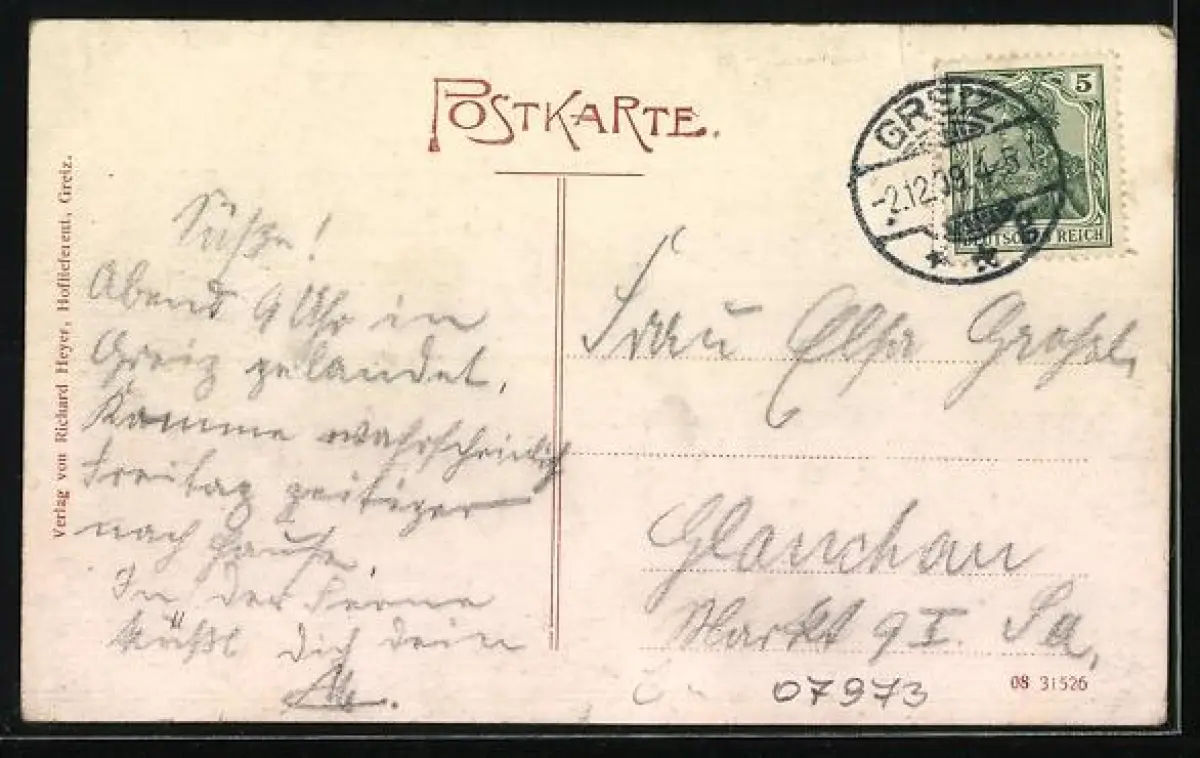 POSTKARTE.
Verlag von Richard Heyer, Hoflieferent, Greiz.
GREIZ
-2.12.09. 4-5
5
DEUTSCHES REICH
Süße!
Abend 9 Uhr in
Greiz gelandet.
Komme wahrscheinlich
Freitag zeitiger
nach Hause.
In der Ferne
küßt dich dein
Frau Elsa
Glauchau
Markt 9 I. Sa,
07973
08 31526